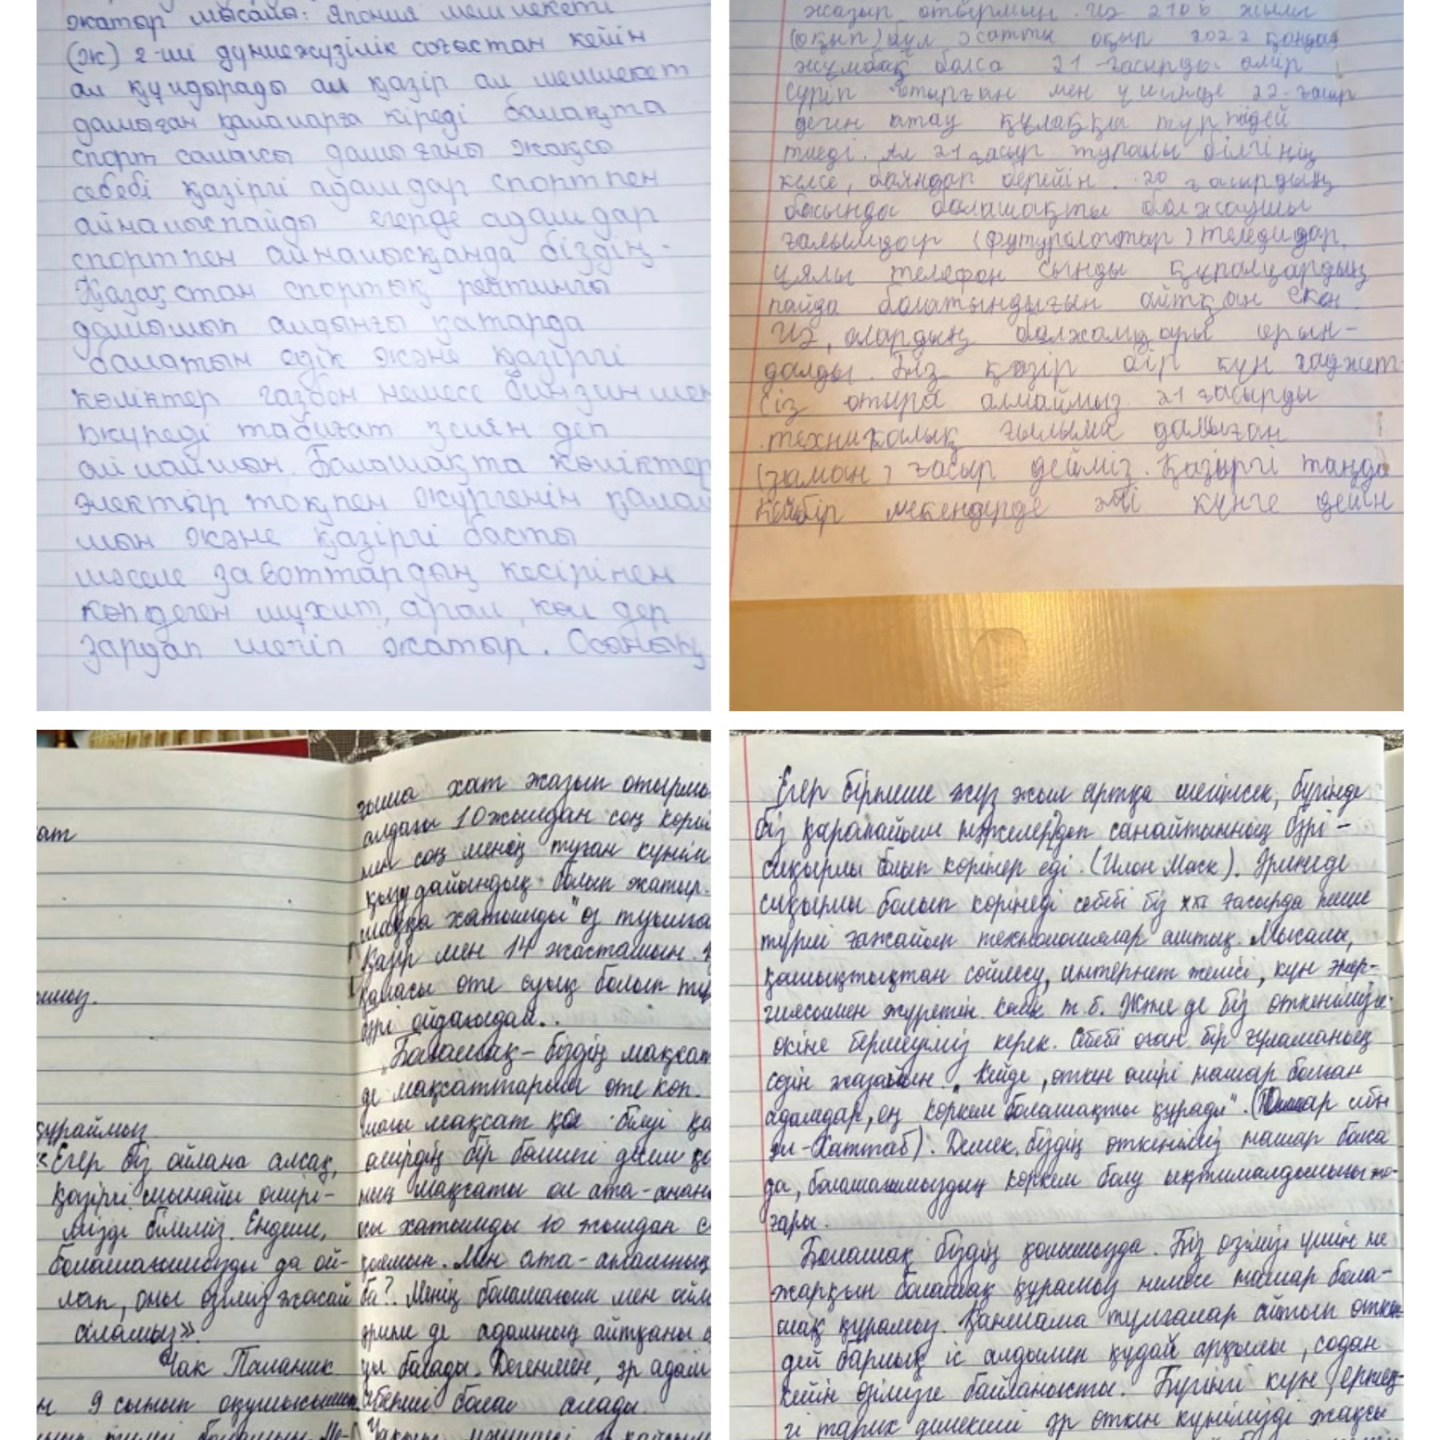 жатыр мысалы: Япония мемлекеті
(ж) 2-ші дүниежүзілік соғыстан кейін
ал құлдырады ал қазір ол мемлекет
дамыған қалаларға кіреді болашақта
спорт саласы дамығаны жақсы
себебі қазіргі адамдар спортпен
айналыспайды егерде адамдар
спортпен айналысқанда біздің
Қазақстан спорттық рейтингі
дамышып алдыңғы қатарда
болатын едік және қазіргі
көліктер газбен немесе бинзинмен
жүреді табиғат зиян деп
ойлаймын. Болашақта көліктер
электір тоқпен жүргенін қалай
мын және қазіргі басты
мәселе завоттардың кесірінен
көптеген мұхит, арал, көлдер
зардап шегіп жатыр. Осының
жазып отырмын. Иә 2106 жылы
(оқып) бұл хатты оқыр 2022 қандай
жұмбақ болса 21-ғасырды өмір
сүріп отырған мен үшінде 22-ғасыр
деген атау құлаққа түрпідей
тиеді. Ал 21 ғасыр туралы білгің
келсе, баяндап берейін. 20 ғасырдың
басында болашақты болжаушы
ғалымдар (футурологтар) теледидар,
ұялы телефон сынды құралдардың
пайда болатындығын айтқан екен.
Иә, олардың болжамдары орын-
далды. Біз қазір бір күн гаджет
сіз отыра алмаймыз 21 ғасырды
техникалық ғылыми дамыған
(заман) ғасыр дейміз. Қазіргі таңда
кейбір мекендерде әлі күнге дейін
ат
құраймыз
«Егер біз ойлана алсақ,
қазіргі шынайы өмірі-
мізді білеміз. Ендеше,
болашағымызды да ой-
лап, оны өзіміз жасай
аламыз».
Чак Паланик
н 9 сынып оқушысымын
ғыма хат жазып отырмы
алдағы 10 жылдан соң көрі
мен соң менің туған күнім
қызу дайындық болып жатыр.
хатымды өз туылға
Қазір мен 14 жастамын.
қаласы өте суық болып тұр
бәрі ойдағыдай..
„Болашақ – біздің мақсат
де мақсаттарым өте көп.
мақсат қоя білуі қа
өмірдің бір бөлшегі десем қа
ның мақсаты ол ата-анан
осы хатымды 10 жылдан с
қоямын. Мен ата-анамның
ба? Менің болашағым мен ойл
әрине де адамның айтқаны
ды болады. Дегенмен, әр адам
себепші бола алады.
Егер бірнеше жүз жыл артқа шегінсек, бүгінде
біз қарапайым нәрселердеп санайтынның бәрі –
сиқырлы болып көрінер еді. (Илон Маск). Әринеде
сиқырлы болып көрінеді себебі біз ХХІ ғасырда неше
түрлі ғажайып технологиялар аштық. Мысалы,
қашықтықтан сөйлесу, интернет желісі, күн энер-
гиясымен жүретін көлік т.б. Және де біз өткенімізге
өкіне бермеуіміз керек. Себебі оған бір ғұламаның
сөзін жазайын. „Кейде, өткен өмірі нашар болған
адамдар, ең көркем болашақты құрады". (Омар ибн
әл-Хаттаб). Демек, біздің өткеніміз нашар болса
да, болашағымыздың көркем болу ықтималдылығы жо-
ғары.
Болашақ біздің қолымызда. Біз өзіміз үшін не
жарқын болашақ құрамыз немесе нашар бола-
шақ құрамыз. Қаншама тұлғалар айтып өткен-
дей барлық іс алдымен құдай арқылы, содан
кейін өзімізге байланысты. Бүгінгі күн ертең-
гі тарих әр өткен күнімізді жақсы